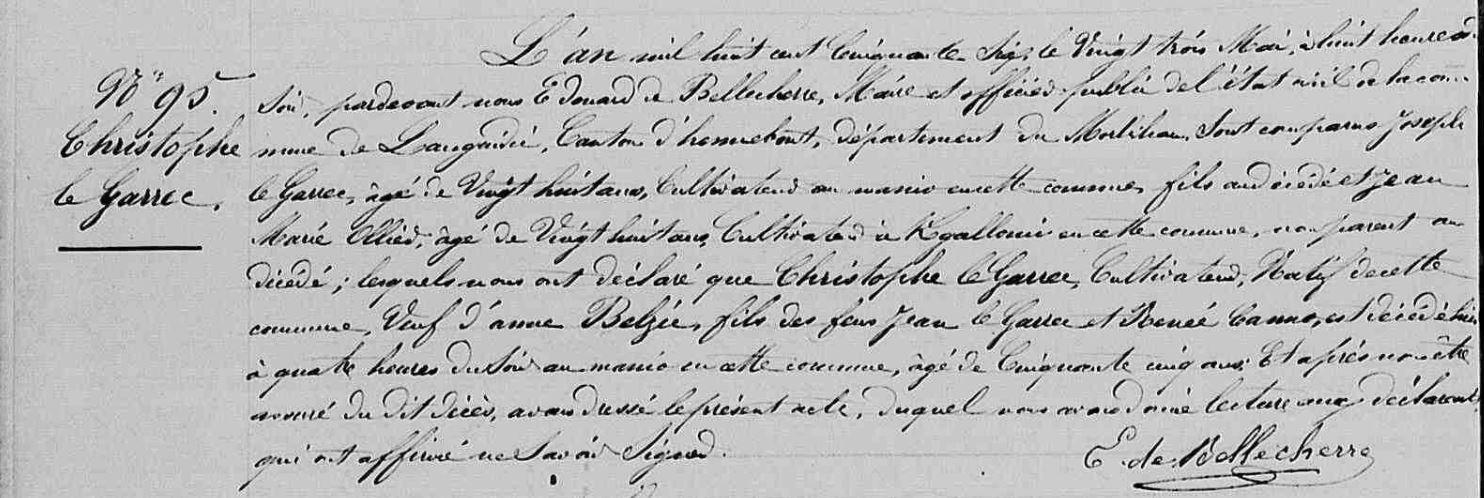 L'an mil huit cent Cinquante Six, le Vingt trois Mai, à huit heures du
N° 95.
Christophe
le Garrec.
Soir, pardevant nous Edouard de Bellecherre, Maire et officier public de l'état civil de la com-
mune de Languidic, Canton d'hennebont, département du Morbihan. Sont comparus Joseph
le Garrec, âgé de Vingt huit ans, Cultivateur au manio en cette commune, fils au décédé et Jean
Marie Ollier, âgé de Vingt huit ans, Cultivateur à K/gallonic en cette commune, non parent au
décédé ; lesquels nous ont déclaré que Christophe le Garrec, Cultivateur, Natif de cette
commune, Veuf d'anne Belzic, fils des feus Jean le Garrec et Renée Canno, est décédé hier
à quatre heures du Soir au manio en cette commune, âgé de Cinquante cinq ans. Et après nous être
assuré du dit décès, avons dressé le présent acte, duquel nous avons donné lecture aux déclarants
qui ont affirmé ne Savoir Signer.
E. de Bellecherre